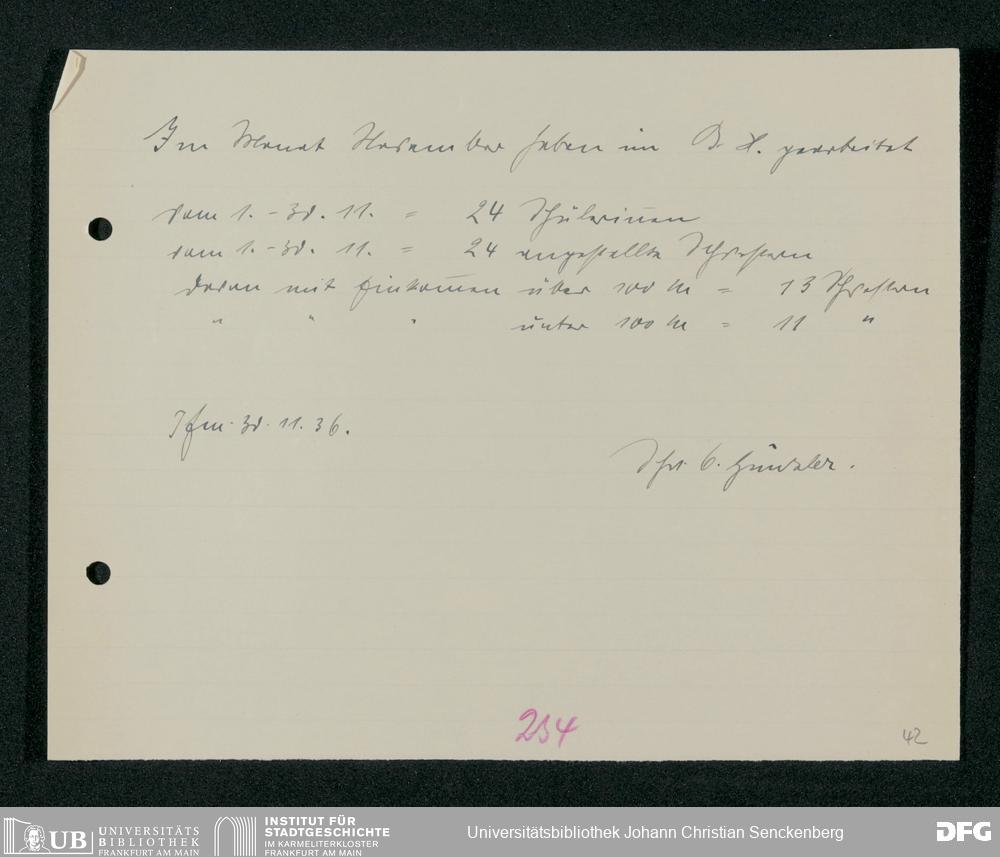 Im Monat November haben im B. H. gearbeitet
vom 1. - 30. 11. = 24 Schülerinnen
vom 1. - 30. 11. = 24 angestellte Schwestern
davon mit Einkommen über 100 M = 13 Schwestern
" " " unter 100 M = 11 "
Ffm. 30. 11. 36.
Schw.
234
42
UB UNIVERSITÄTS
BIBLIOTHEK
FRANKFURT AM MAIN
INSTITUT FÜR
STADTGESCHICHTE
IM KARMELITERKLOSTER
FRANKFURT AM MAIN
Universitätsbibliothek Johann Christian Senckenberg
DFG